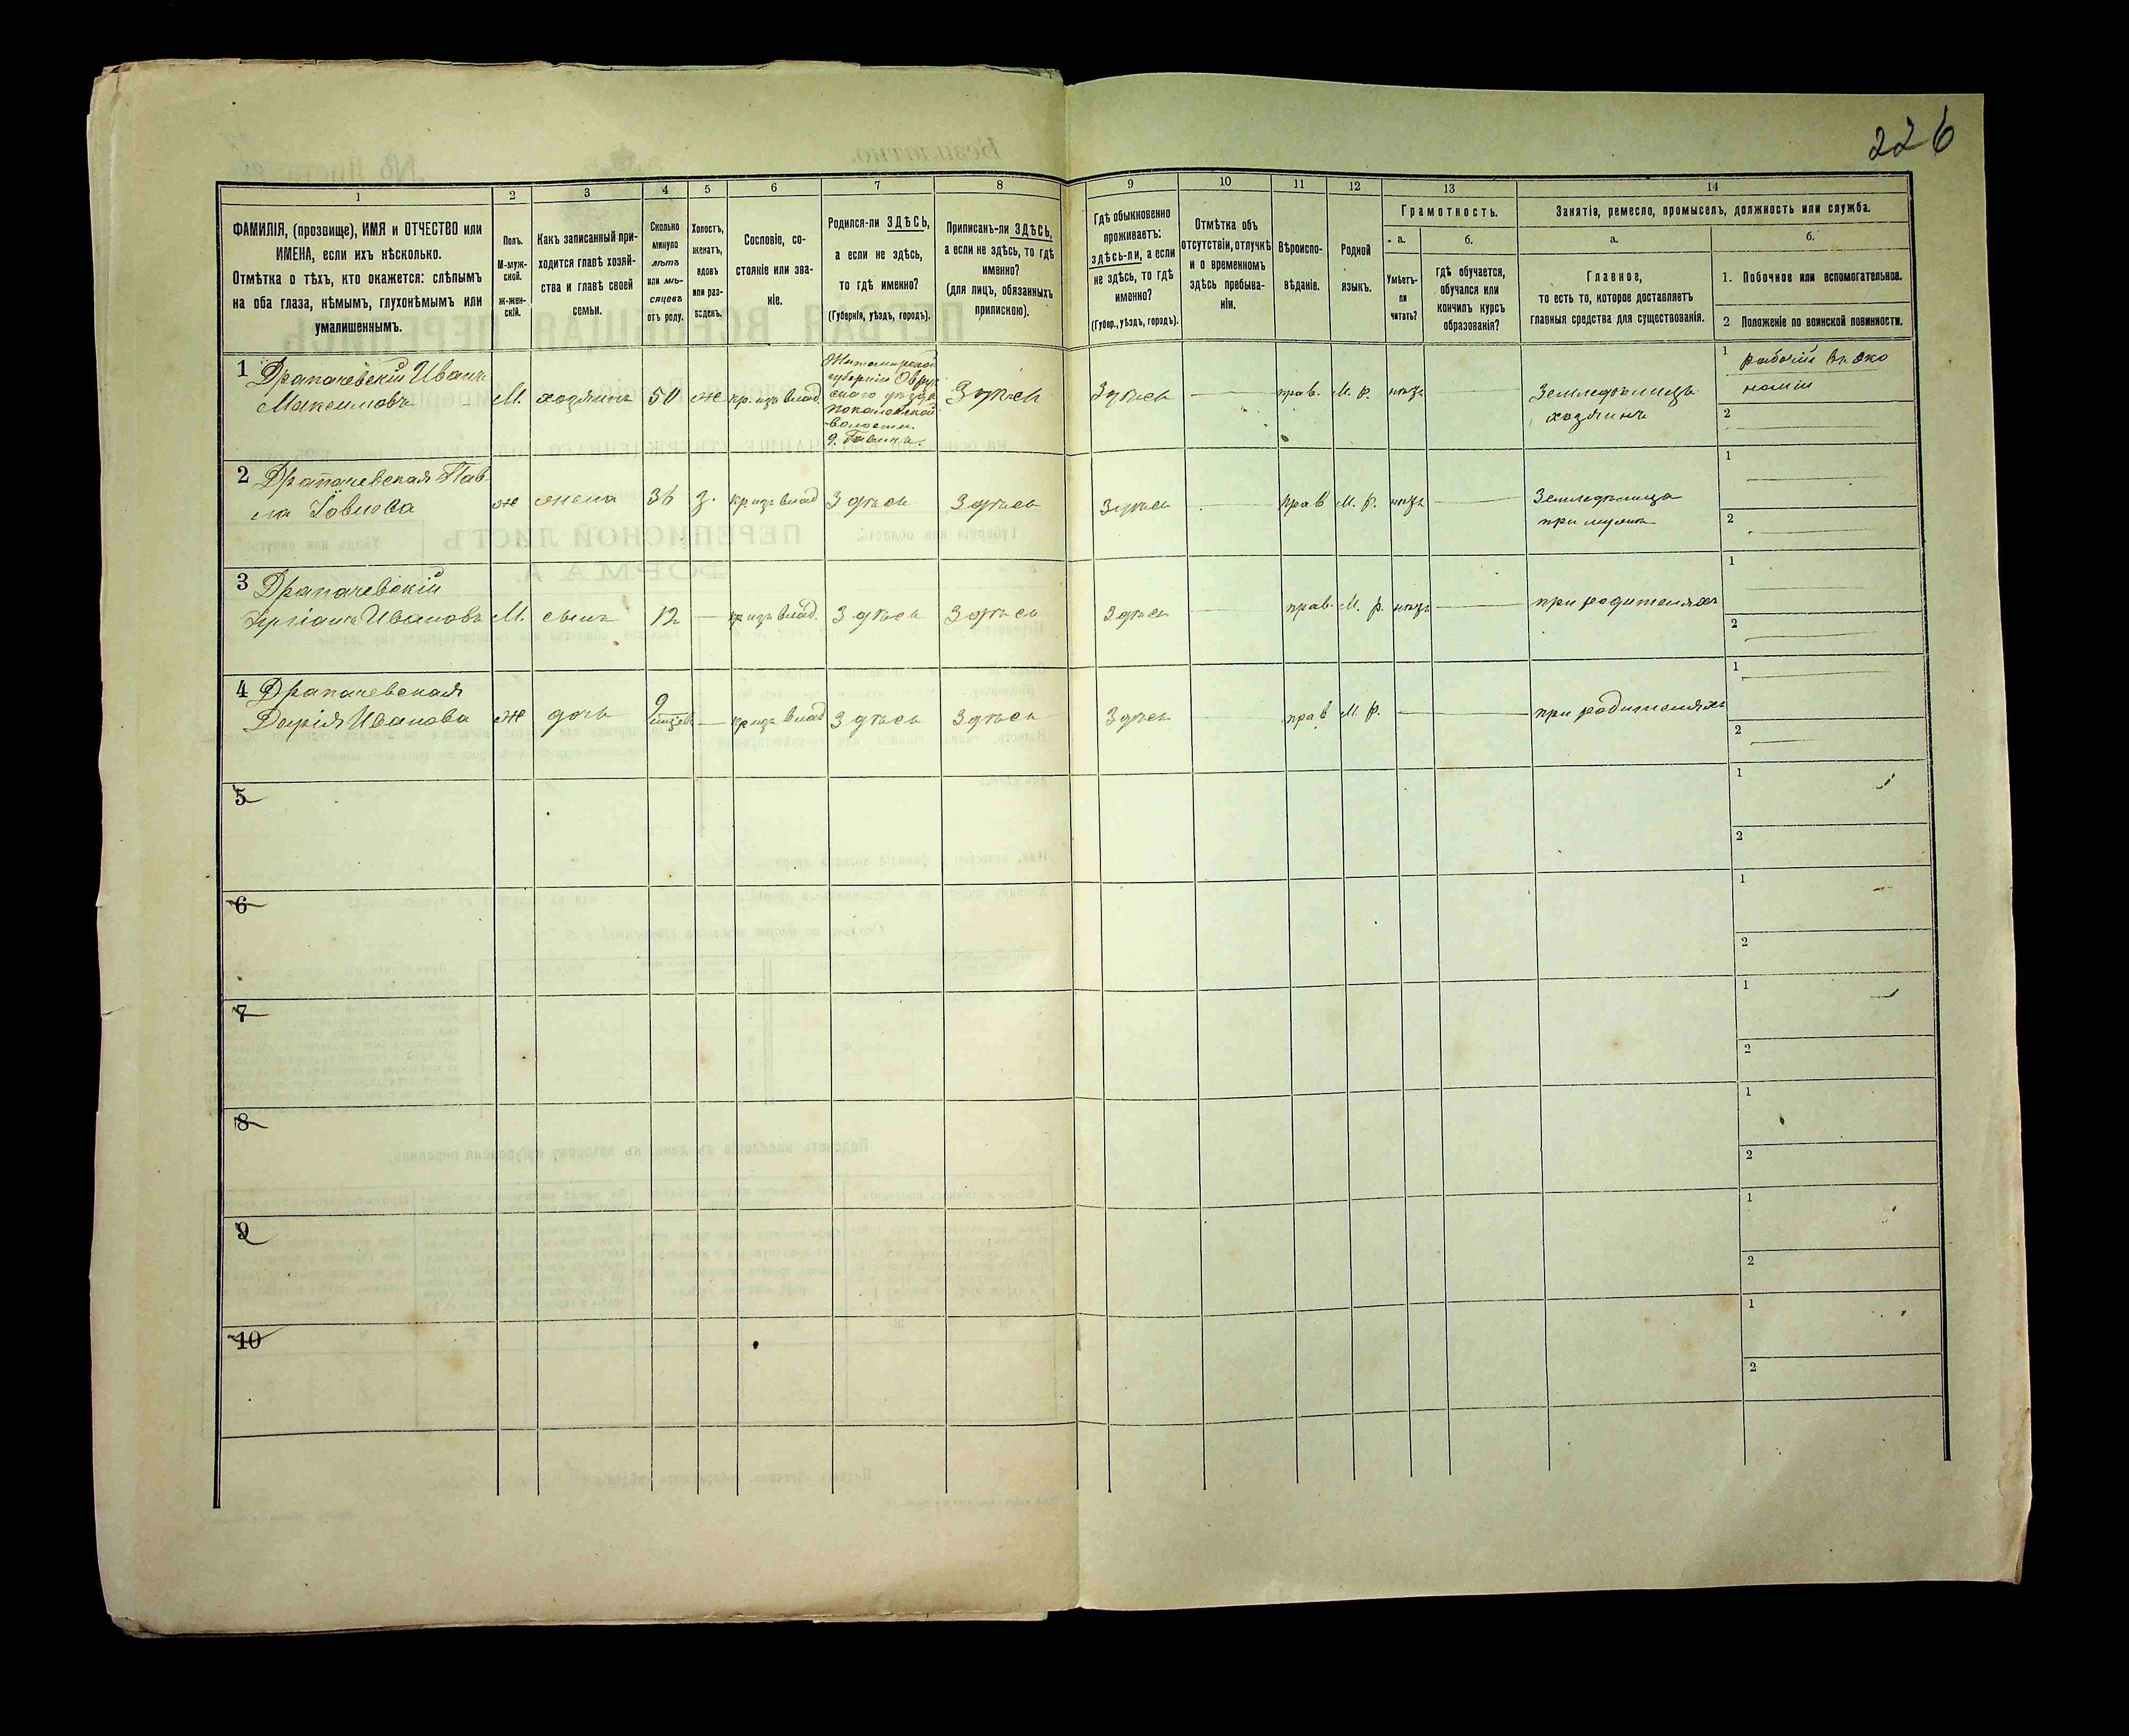 226
1
2
3
4
5
6
7
8
9
10
11
12
13
14
ФАМИЛІЯ, (прозвище), ИМЯ и ОТЧЕСТВО или
ИМЕНА, если ихъ нѣсколько.
Отмѣтка о тѣхъ, кто окажется: слѣпымъ
на оба глаза, нѣмымъ, глухонѣмымъ или
умалишеннымъ.
Полъ.
М-муж-
ской.
Ж-жен-
скій.
Какъ записанный при-
ходится главѣ хозяй-
ства и главѣ своей
семьи.
Сколько
минуло
лѣтъ
или мѣ-
сяцевъ
отъ роду.
Холостъ,
женатъ,
вдовъ
или раз-
веденъ.
Сословіе, со-
стояніе или зва-
ніе.
Родился-ли ЗДѢСЬ,
а если не здѣсь,
то гдѣ именно?
(Губернія, уѣздъ, городъ).
Приписанъ-ли ЗДѢСЬ,
а если не здѣсь, то гдѣ
именно?
(для лицъ, обязанныхъ
припискою).
Гдѣ обыкновенно
проживаетъ:
здѣсь-ли, а если
не здѣсь, то гдѣ
именно?
(Губер., уѣздъ, городъ).
Отмѣтка объ
отсутствіи, отлучкѣ
и о временномъ
здѣсь пребыва-
ніи.
Вѣроиспо-
вѣданіе.
Родной
языкъ.
Грамотность.
а.
Умѣетъ-
ли
читать?
б.
гдѣ обучается,
обучался или
кончилъ курсъ
образованія?
Занятія, ремесло, промыселъ, должность или служба.
а.
Главное,
то есть то, которое доставляетъ
главныя средства для существованія.
б.
1. Побочное или вспомогательное.
2 Положеніе по воинской повинности.
1 Драпачевскій Иванъ
Максимовъ
М.
хозяинъ
50
ж
кр. изъ влад.
Житомирской
губерніи Овруч
скаго уѣзда
Покалевской
волости.
Здѣсь
Здѣсь
прав.
М. р.
нѣтъ
Земледѣлецъ
хозяинъ
1 рабочій въ эко
номіи
2
2 Драпачевская Пав
ла
ж
жена
36
з.
кр изъ влад
Здѣсь
Здѣсь
Здѣсь
прав
М. р.
нѣтъ
Земледѣлица
при мужѣ
1
2
3 Драпачевскій
Ивановъ
М.
сынъ
12
кр изъ влад.
Здѣсь
Здѣсь
Здѣсь
прав.
М. р.
нѣтъ
при родителяхъ
1
2
4 Драпачевская
Дарія Иванова
ж
дочь
9
кр изъ влад
Здѣсь
Здѣсь
Здѣсь
прав
М. р.
при родителяхъ
1
2
5
1
2
6
1
2
7
1
2
8
1
2
9
1
2
10
1
2